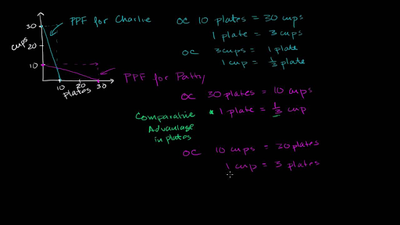 30
20
10
cups
10 20 30
Plates
PPF for Charlie
OC 10 plates = 30 cups
1 plate = 3 cups
OC 3 cups = 1 plate
1 cup = 1/3 plate
PPF for Patty
OC 30 plates = 10 cups
Comparative Advantage in plates
* 1 plate = 1/3 cup
OC 10 cups = 30 plates
1 cup = 3 plates